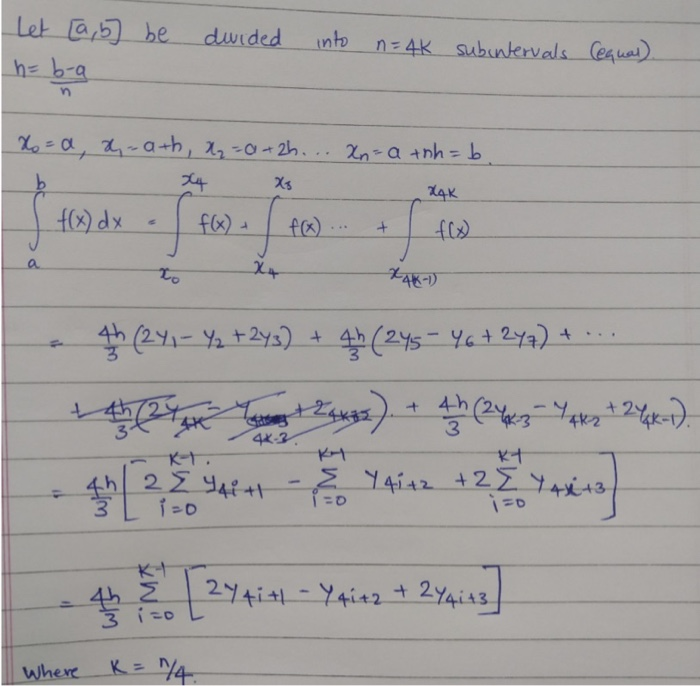 Let [a,b] be divided into n=4K subintervals (equal).
h= b-a/n
x₀=a, x₁=a+h, x₂=a+2h... xₙ=a+nh=b.
∫ₐᵇ f(x)dx = ∫_{x₀}^{x₄} f(x) + ∫_{x₄}^{x₈} f(x) ... + ∫_{x_{4(K-1)}}^{x_{4K}} f(x)
= 4h/3 (2y₁-y₂+2y₃) + 4h/3 (2y₅-y₆+2y₇) + ...
+ 4h/3 (2y_{4K-3}-y_{4K-2}+2y_{4K-1}).
= 4h/3 [2 ∑_{i=0}^{K-1} y_{4i+1} - ∑_{i=0}^{K-1} y_{4i+2} + 2 ∑_{i=0}^{K-1} y_{4i+3}]
= 4h/3 ∑_{i=0}^{K-1} [2y_{4i+1} - y_{4i+2} + 2y_{4i+3}]
Where K = n/4.